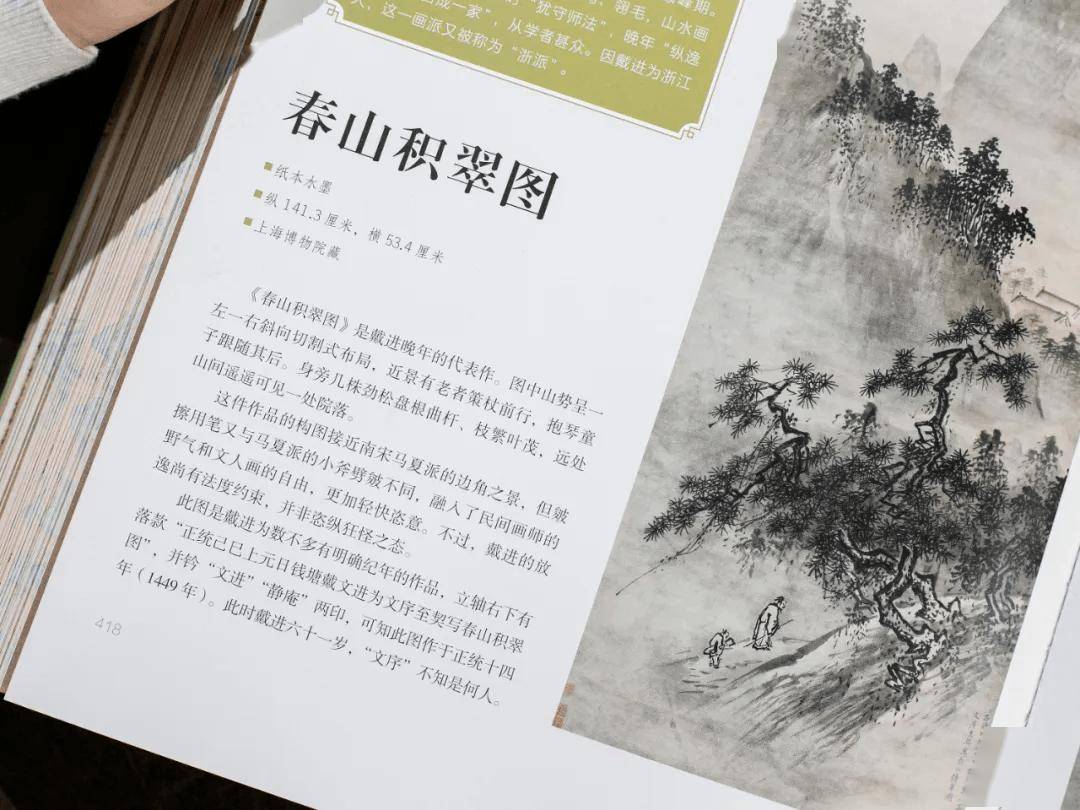 翎毛，山水画
“犹守师法”，晚年“纵逸
成一家”，从学者甚众。因戴进为浙江
人，这一画派又被称为“浙派”。
春山积翠图
纸本水墨
纵 141.3 厘米，横 53.4 厘米
上海博物院藏
《春山积翠图》是戴进晚年的代表作。图中山势呈一
左一右斜向切割式布局，近景有老者策杖前行，抱琴童
子跟随其后。身旁几株劲松盘根曲杆、枝繁叶茂，远处
山间遥遥可见一处院落。
这件作品的构图接近南宋马夏派的边角之景，但皴
擦用笔又与马夏派的小斧劈皴不同，融入了民间画师的
野气和文人画的自由，更加轻快恣意。不过，戴进的放
逸尚有法度约束，并非恣纵狂怪之态。
此图是戴进为数不多有明确纪年的作品，立轴右下有
落款“正统己巳上元日钱塘戴文进为文序至契写春山积翠
图”，并钤“文进”“静庵”两印，可知此图作于正统十四
年（1449 年）。此时戴进六十一岁，“文序”不知是何人。
418